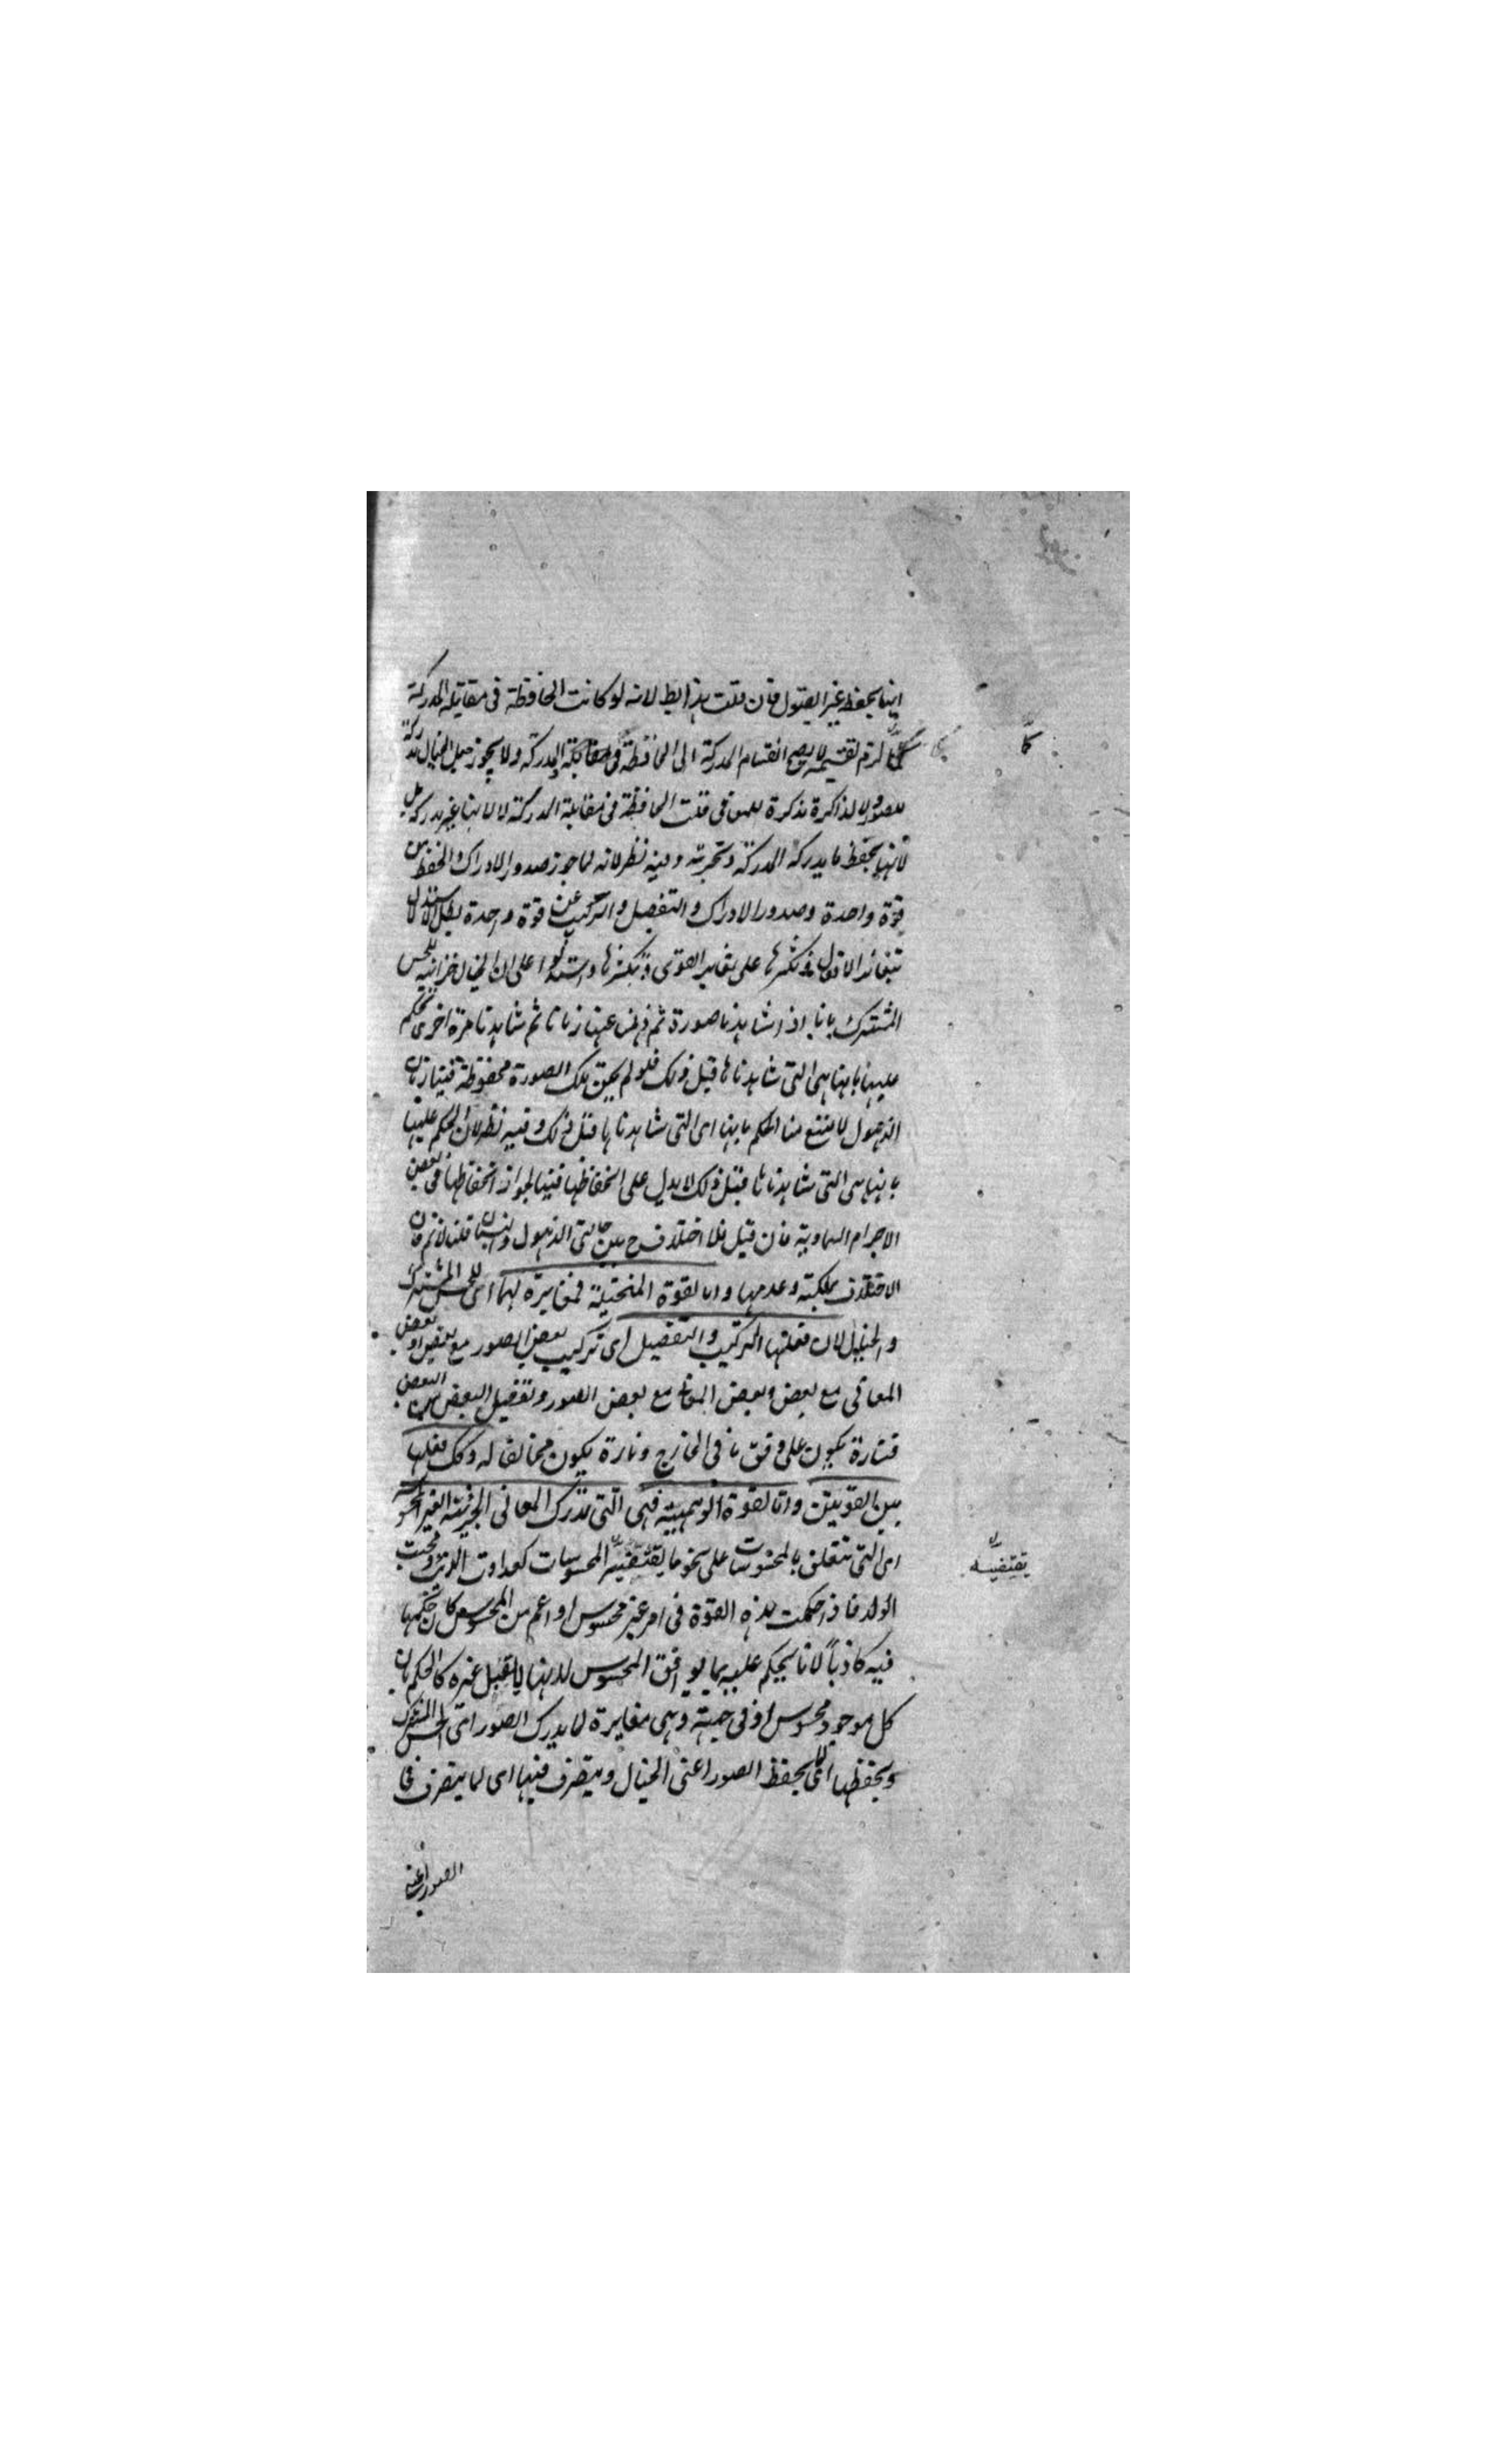 ايضا يحفظ غير القبول فان قلت هذا يط لانه لو كانت الحافظة فى مقابلة المدركة
لزم تقسيمه لا يصح انقسام المدركة الى الحافظة فى مقابلة المدركة ولا يجوز جعل الخيال مدركة
للصور ولا لذاكرة مذكرة للمعانى قلت الحافظة فى مقابلة المدركة لا لانها غير مدركة بل
لانها يحفظ ما يدركه المدركة وتخزنه وفيه نظر لانه لما جوز صدور الادراك والحفظ من
قوة واحدة وصدور الادراك والتفصيل والتركيب عن قوة واحدة بطل الاستدلال
بتغاير الافعال وتكثرها على تغاير القوى وتكثرها واستدلوا على ان الخيال خزانته للحس
المشترك بانا اذا شاهدنا صورة ثم ذهلنا عنها زمانا ثم شاهدنا مرة اخرى نحكم
عليها بانها هى التى شاهدناها قبل ذلك فلو لم يكن تلك الصورة محفوظة فينا زمان
الذهول لامتنع منا الحكم بانها هى التى شاهدناها قبل ذلك وفيه نظر لان الحكم عليها
بانها هى التى شاهدناها قبل ذلك لا يدل على انحفاظها فينا لجواز انحفاظها فى بعض
الاجرام السماوية فان قيل فلا اختلاف ح بين حالتى الذهول والنسيان قلنا لا نم فان
الاختلاف بملكته وعدمها واما القوة المتخيلة فمغايرة لهما اى للحس المشترك
والخيال لان فعلها التركيب والتفصيل اى تركيب بعض الصور مع بعض او بعض
المعانى مع بعض وبعض المعانى مع بعض الصور وتفصيل البعض من البعض
فتارة يكون على وفق ما فى الخارج وتارة يكون مخالفا له وذلك فعلها
بين القوتين واما القوة الوهمية فهى التى تدرك المعانى الجزئية الغير المحسوسة
اى التى تتعلق بالمحسوسات على نحو ما يقتضيه المحسوسات كعداوت الذئب ومحبت
الولد فاذا حكمت هذه القوة فى امر غير محسوس او اعم من المحسوس كان حكمها
فيه كاذباً لانا نحكم عليه بما يوافق المحسوس لانها لا تقبل غيره كالحكم بان
كل موجود محسوس او فى جهة وهى مغايرة لما يدرك الصور اى الحس المشترك
ويحفظها اى لما يحفظ الصور اعنى الخيال ويتصرف فيها اى لما يتصرف فى
الصور اعنى
يقتضيه